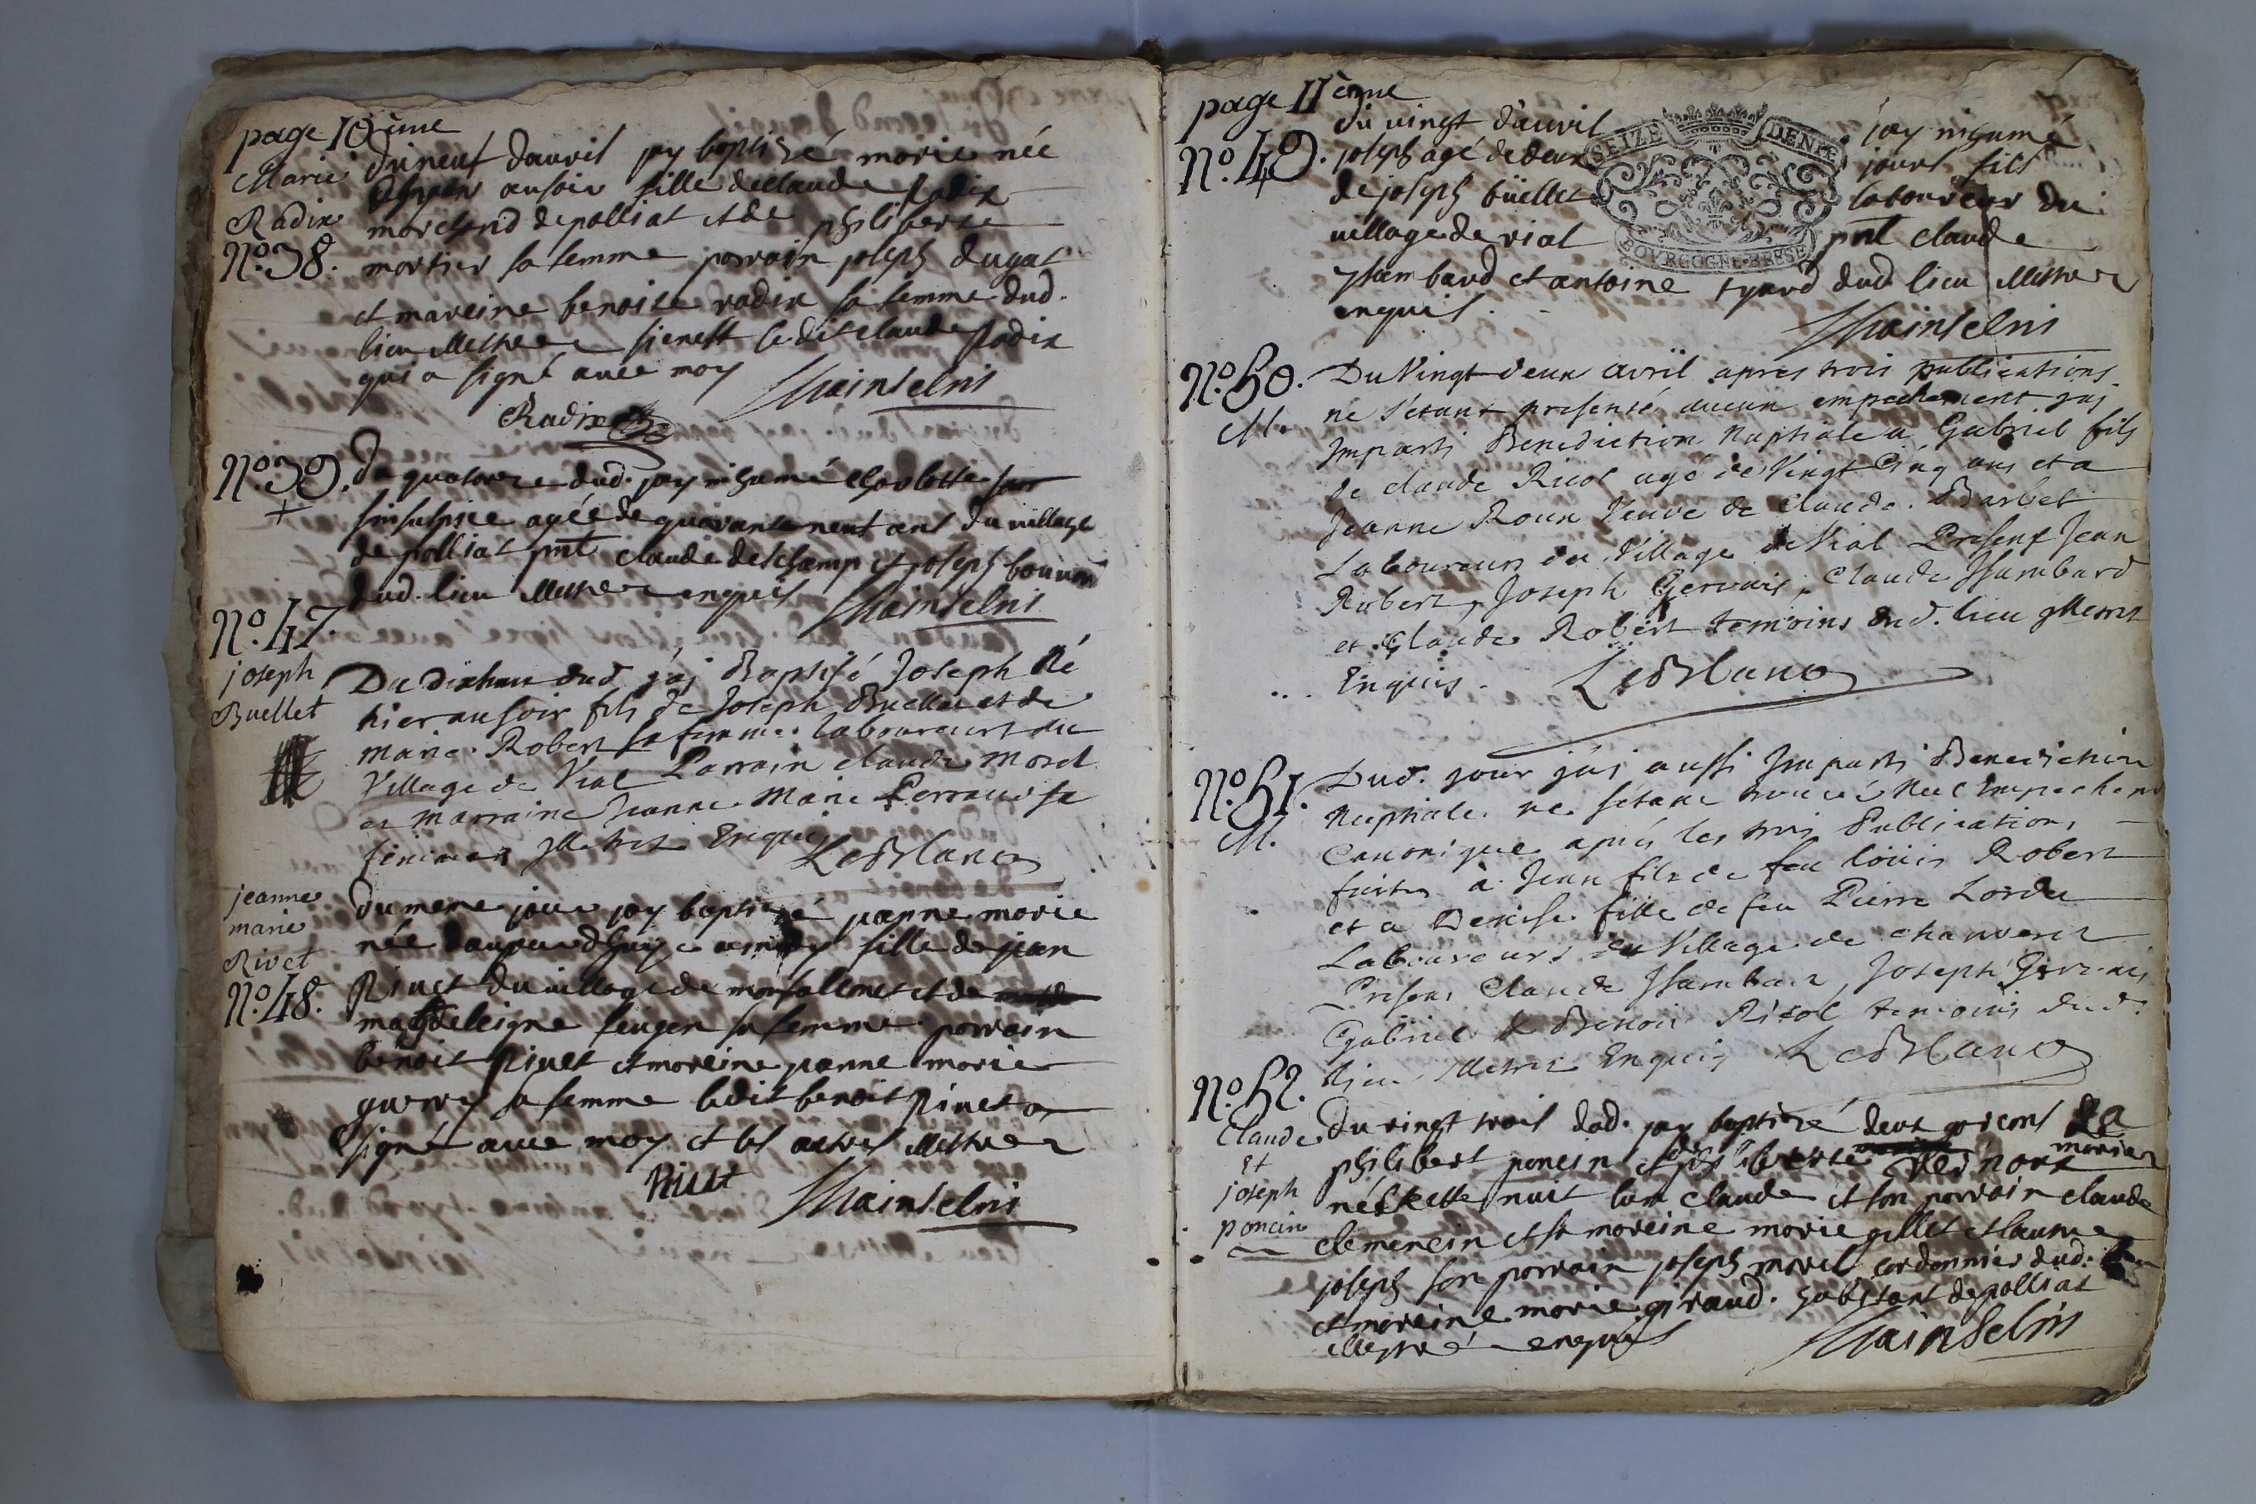 page 10ème
Marie
Radix
N.º 38.
du neuf davril jay baptizé marie née
au soir fille de claude Radix
marchand depolliat et de philiberte
mortier sa femme parrain joseph dugat
et mareine benoite radix sa femme dud.
lieu illettrez sienest ledit claude Radix
qui a signé avec moy
Radix
N.º 39.
+
du quatorze dud. jay inhumé charlotte
agée de quarante neuf ans du village
de polliat pnt claude deschamp et joseph bouvier
dud. lieu illettrez enquis
N.º 47.
joseph
Buellet
Du dixhuit dud. j'ai Baptisé Joseph Né
hier au soir fils de Joseph Buellet et de
Marie Robert sa femme laboureurs du
Village de Vial Parrain claude Morel
et Marraine Jeanne Marie Perraud sa
femme illetrez Enquis
LeBlanc
jeanne
marie
Rivet
N.º 48.
du meme jour jay baptizé janne marie
née daujourdhuy a midy fille de jean
Rivet du village de monfalconet et de
magdeleigne feugen sa femme parrain
benoit Rivet et mareine janne marie
guerry sa femme ledit benoit Rivet a
signé avec moy et les autres illettrez
Rivet
page 11ème
N.º 49.
du vingt d'auvril jay inhumé
joseph agé de deux jours fils
de joseph büellet laboureur du
village de vial pnt claude
ysambard et antoine tyard dud. lieu illettrez
enquis.
SEIZE DENIE
BOURGOGNE BRESSE
N.º 50.
M.
Du Vingt deux avrïl apres trois publications
ne s'etant presenté aucun empechement jai
Imparti Benediction Nuptiale a Gabriel fils
de claude Ricol agé de Vingt Cinq ans et a
Jeanne Roux Veuve de Claude Barbet
Laboureurs du Village de Vial Present Jean
Robert, Joseph Gervais, Claude Isambard
et Claude Robert temoins dud. lieu illetrez
Enquis.
LeBlanc
N.º 51.
M.
Dud. jour j'ai aussi Imparti Benediction
Nuptiale ne s'etant trouvé Nul Empechemt
Canonique apres les trois Publications
faites à Jean fils de feu loüis Robert
et a Denise fille de feu Pierre Lordu
Laboureurs du Village de chanveret
Presens Claude Isambard, Joseph Gervais
Gabriel & Benoit Ricol temoins dud.
lieu illetrez Enquis LeBlanc
N.º 52.
Claude
Et
joseph
poncin
du vingt trois dud. jay baptizé deux garcons de
philibert poncin et de philiberte vernoux
mariez
nés cette nuit lun claude et son parrain claude
clemencin et sa mareine marie gillet et lautre
joseph son parrain joseph morel cordonnier dud.
et mareine marie giraud. habitant de polliat
illettré enquis